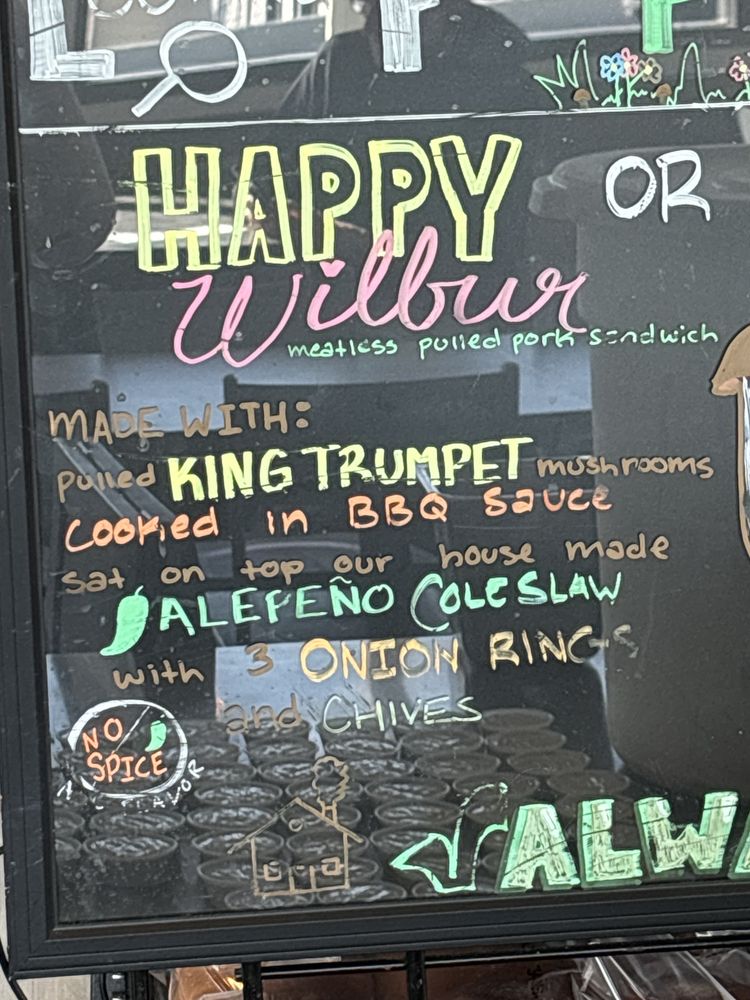 HAPPY OR
Wilbur
meatless pulled pork sandwich
MADE WITH:
pulled KING TRUMPET mushrooms
Cooked in BBQ Sauce
Sat on top our house made
JALEPEÑO COLESLAW
with 3 ONION RINGS
and CHIVES
NO
SPICE
ALWA